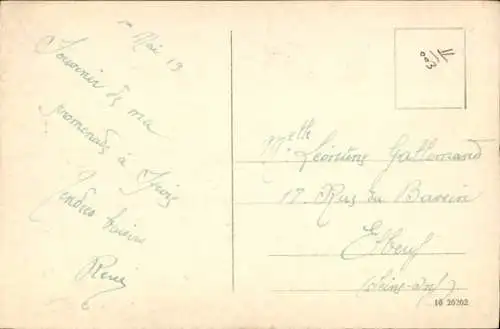 Mai 19
Souvenir de ma
promenade à
Tendres baisers
René
Melle Léontine Gallemand
17 Rue du Bassin
Elbeuf
(Seine-Inf)
16 20202